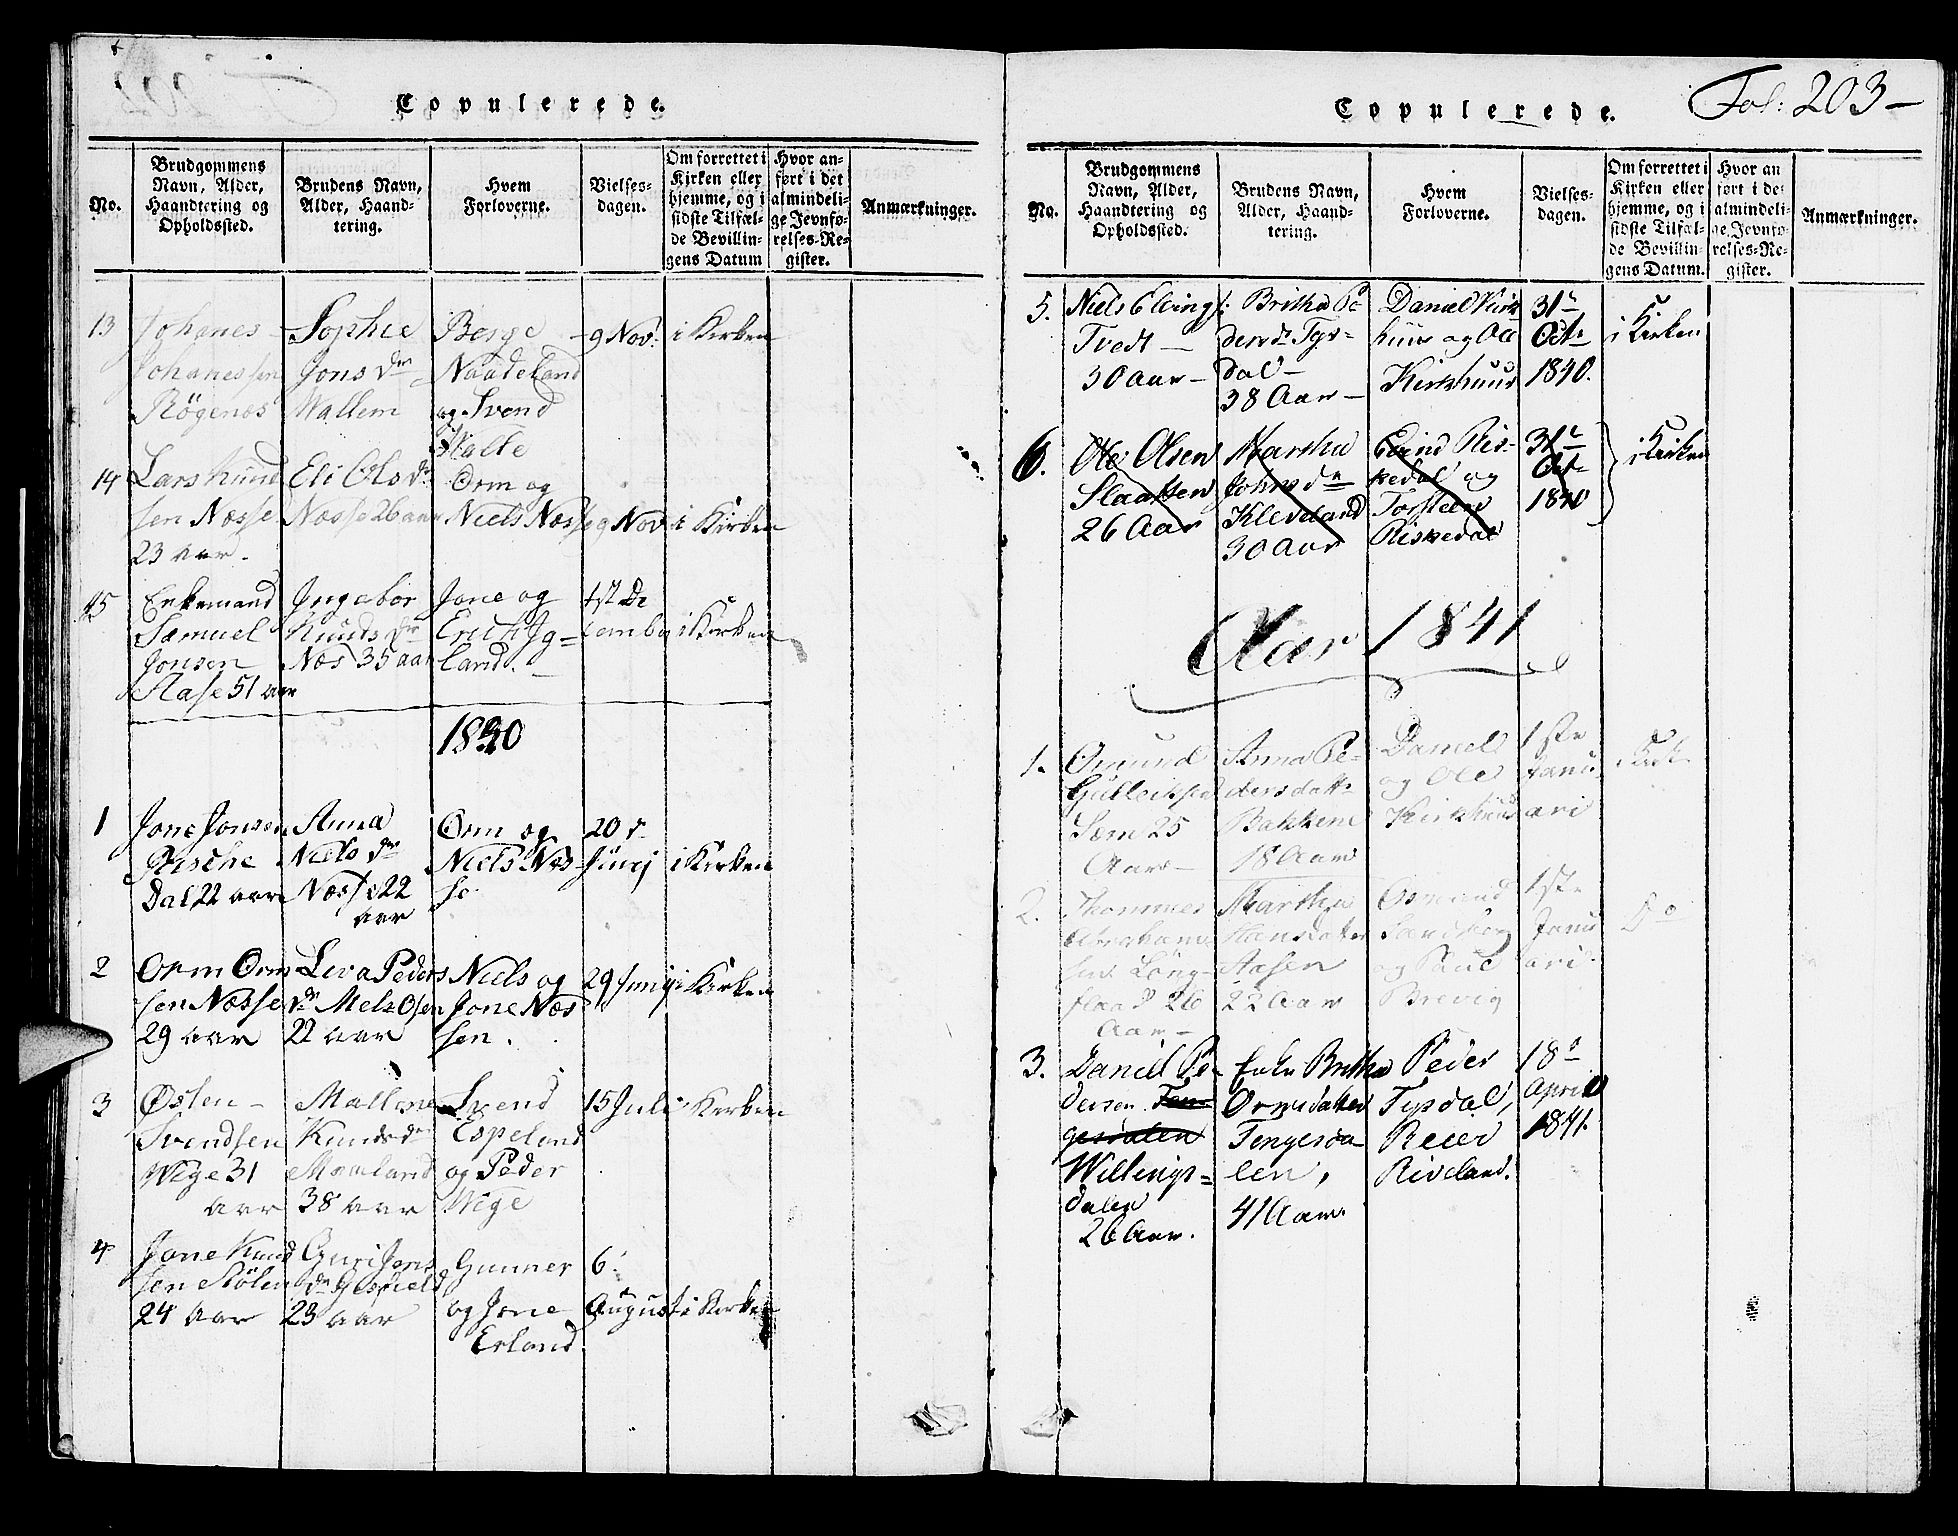 Copulerede.
No.
Brudgommens Navn, Alder, Haandtering og Opholdssted.
Brudens Navn, Alder, Haandtering.
Hvem Forloverne.
Vielsesdagen.
Om forrettet i Kirken eller hjemme, og i sidste Tilfælde Bevillingens Datum
Hvor anført i det almindelige Jevnførelses-Register.
Anmærkninger.
13
Johanes
Johanessen
Røgenes
Sophie
Jons dr
Wallem
Berge
Naadeland
og Svend
Halte
9 Nov:
i Kirken
14
Lars Knud
sen Næsse
23 aar.
Eli Ols dr
Næsse 26 aar
Orm og
Niels Næsse
9 Nov
i Kirken
15
Enkemand
Samuel
Jonsen
Aase 51 aar
Ingebor
Knuds dr
Næs 35 aar
Jone og
Erich Ig=
land.
1st De
cember
i Kirken
1840
1
Jone Jonsen
Rische
Dal 22 aar
Anna
Niels dr
Næsse 22
aar
Orm og
Niels Næs-
se
20 d
Junj
i Kirken
2
Orm Orm
sen Næsse
29 aar
Liva Peders
dr Mels Osen
22 aar
Niels og
Jone Næs
sen.
29 Junij
i Kirken
3
Østen
Svendsen
Wige 31
aar
Mallene
Knuds dr
Moaland
38 aar
Svend
Espeland
og Peder
Wige
15 Juli
i Kirken
4
Jone Knud
sen Stølen
24 aar
Guri Jons
dr Gesfield
23 aar
Gunner
og Jone
Erland
6.
August
i Kirken
Copulerede.
Fol: 203
No.
Brudgommens Navn, Alder, Haandtering og Opholdssted.
Brudens Navn, Alder, Haandtering.
Hvem Forloverne.
Vielsesdagen.
Om forrettet i Kirken eller hjemme, og i sidste Tilfælde Bevillingens Datum.
Hvor anført i det almindelige Jevnførelses-Register.
Anmærkninger.
5.
Niels Elling
Tvedt
30 Aar
Britha Pe
dersd. Tys-
dal
38 Aar
Daniel Kirk
huus og Ole
Kirkhuus
31
Oct.
1840.
i Kirken
6.
Ole Olsen
Slaatten
26 Aar
Martha
Johns dr
Kleveland
30 Aar
Eivind Ris-
kedal og
Torsteen
Riskedal
31
Oct.
1840
i Kirken
Aar 1841
1.
Omund
Gulleiksen
Sem 25
Aar
Anna Pe-
dersdatt.
Bakken
18 Aar
Daniel
og Ole
Kirkhuus
1ste
Janu
ari
Kirk.
2.
Thommes
Abrahams
sen Løng-
flaad 26
Aar
Martha
Hansdatter
Aasen
22 Aar
Osmund
Sandberg
og Paul
Brevig
1ste
Janu
ari
Do
3.
Daniel Pe-
dersen Ten-
gesdalen
Willings=
dalen
26 Aar.
Enke Britha
Ormsdatter
Tengesda
len,
41 Aar.
Peder
Tysdal,
Reier
Riveland.
18
April
1841.